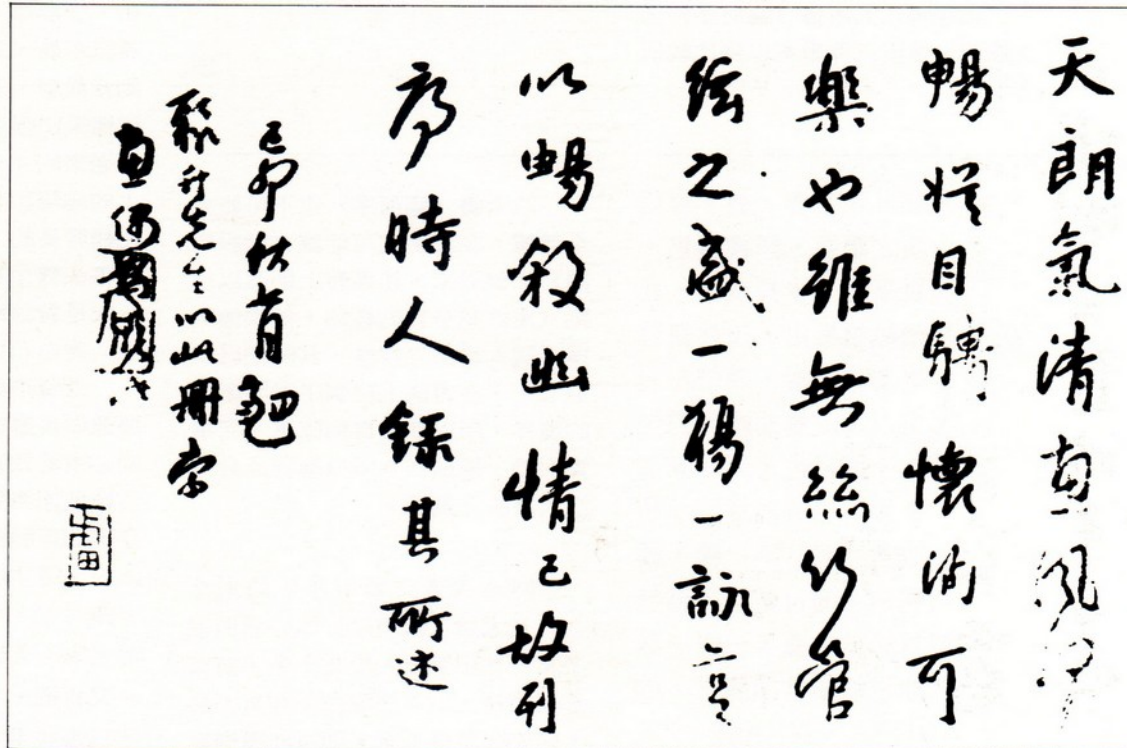 天朗氣清惠風和
暢娱目騁懷洵可
樂也雖無絲竹管
絃之盛一觴一詠
以暢敘幽情已故列
序時人錄其所述
己卯秋
先生以此冊字